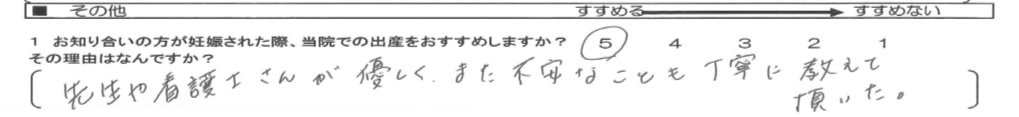 ■ その他 すすめる → すすめない
1 お知り合いの方が妊娠された際、当院での出産をおすすめしますか？ 5 4 3 2 1
その理由はなんですか？
先生や看護士さんが優しく、また不安なことも丁寧に教えて
頂いた。